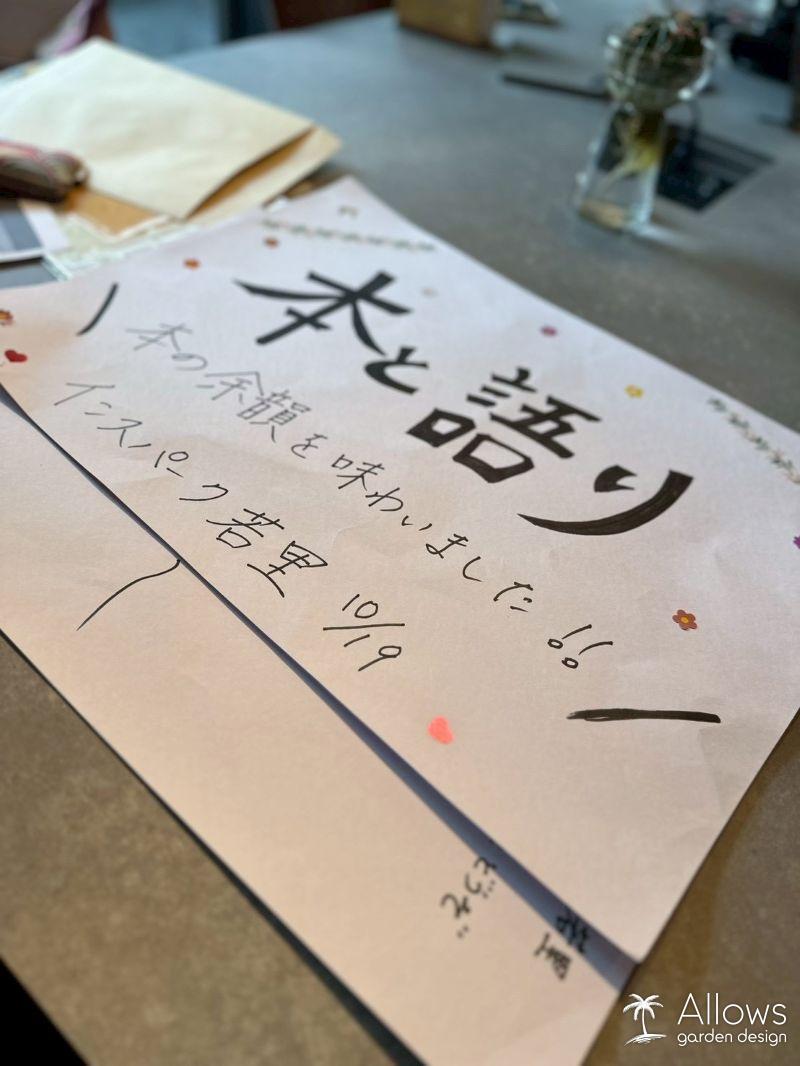 本と語り
本の余韻を味わいました!!
インスパーク若里 10/19
Allows
garden design